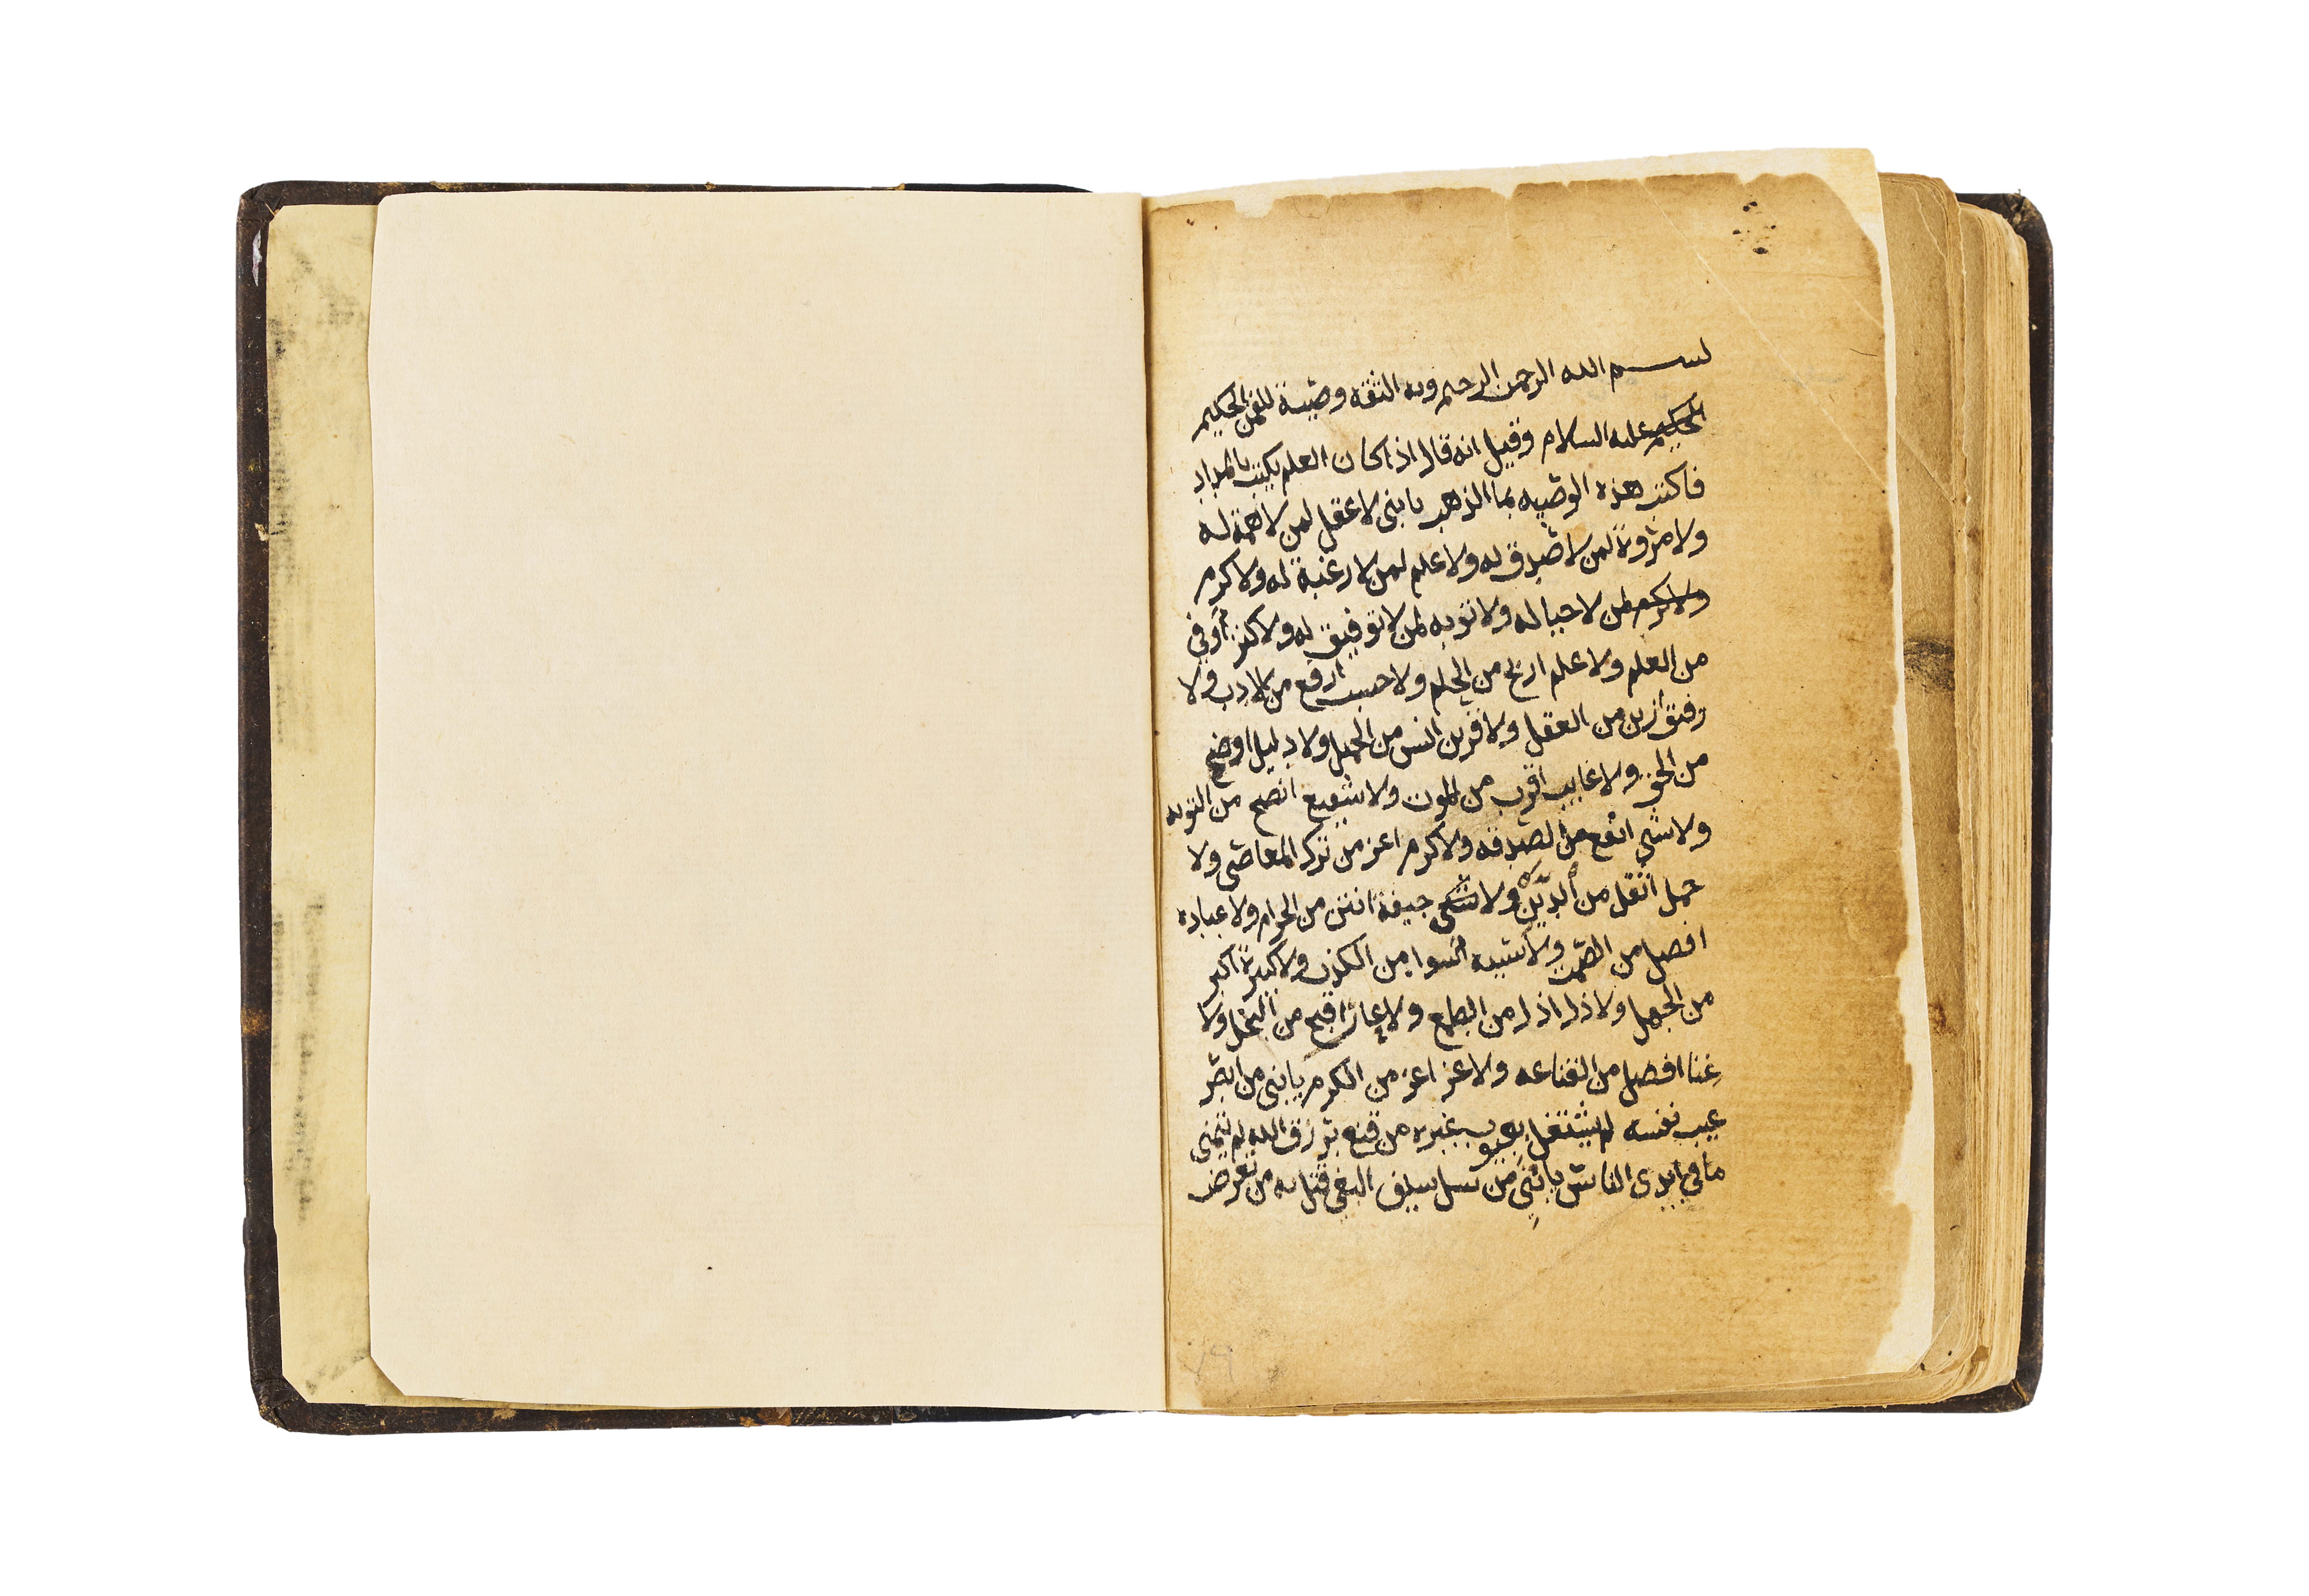 بسم الله الرحمن الرحيم وبه الثقه وصية للقمن الحكيم
الحكيم عليه السلام وقيل انه قال اذا كان العلم يكتب بالمداد
فاكتب هذه الوصيه بما الذهب يا بني لا عقل لمن لا همة له
ولا مروة لمن لا صدق له ولا علم لمن لا رغبة له ولا كرم
ولا كرم لمن لا حيا له ولا توبه لمن لا توفيق له ولا كنز اوفى
من العلم ولا علم اربح من الحلم ولا حسب ارفع من الادب ولا
رفيق ازين من العقل ولا قرين انس من الجهل ولا دليل اوضح
من الحق ولا غايب اقرب من الموت ولا شفيع انصح من التوبه
ولا شي انفع من الصدقه ولا كرم اعز من ترك المعاصي ولا
حمل اثقل من الدين ولا شي جيفة انتن من الحرام ولا عباده
افضل من الصمت ولا شيه اسوا من الكذب ولا كبيرة اكبر
من الجهل ولا ذل اذل من الطمع ولا عار اقبح من البخل ولا
غنا افضل من القناعه ولا عز اعز من الكرم يا بني من ابصر
عيب نفسه لم يشتغل بعيوب غيره من قنع برزق الله لم يتمنى
ما في ايدي الناس يا بني من سل سيف البغي قتل به من تعرض